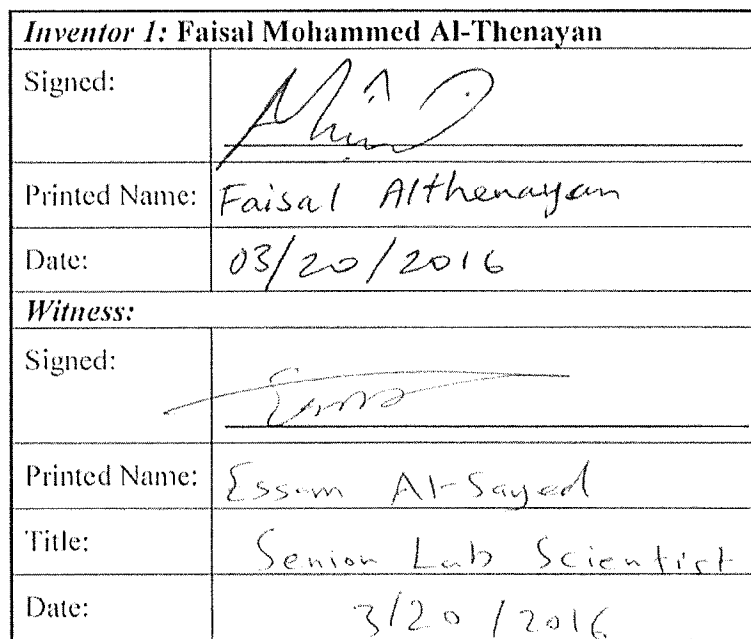 Inventor 1: Faisal Mohammed Al-Thenayan
Signed:
Printed Name: Faisal Althenayan
Date: 03/20/2016
Witness:
Signed:
Printed Name: Essam Al-Sayed
Title: Senior Lab Scientist
Date: 3/20/2016